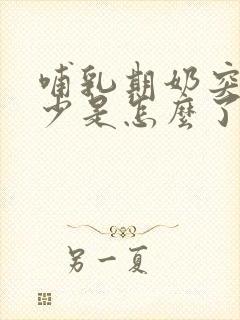 哺乳期奶突
少是怎麽了
另一夏